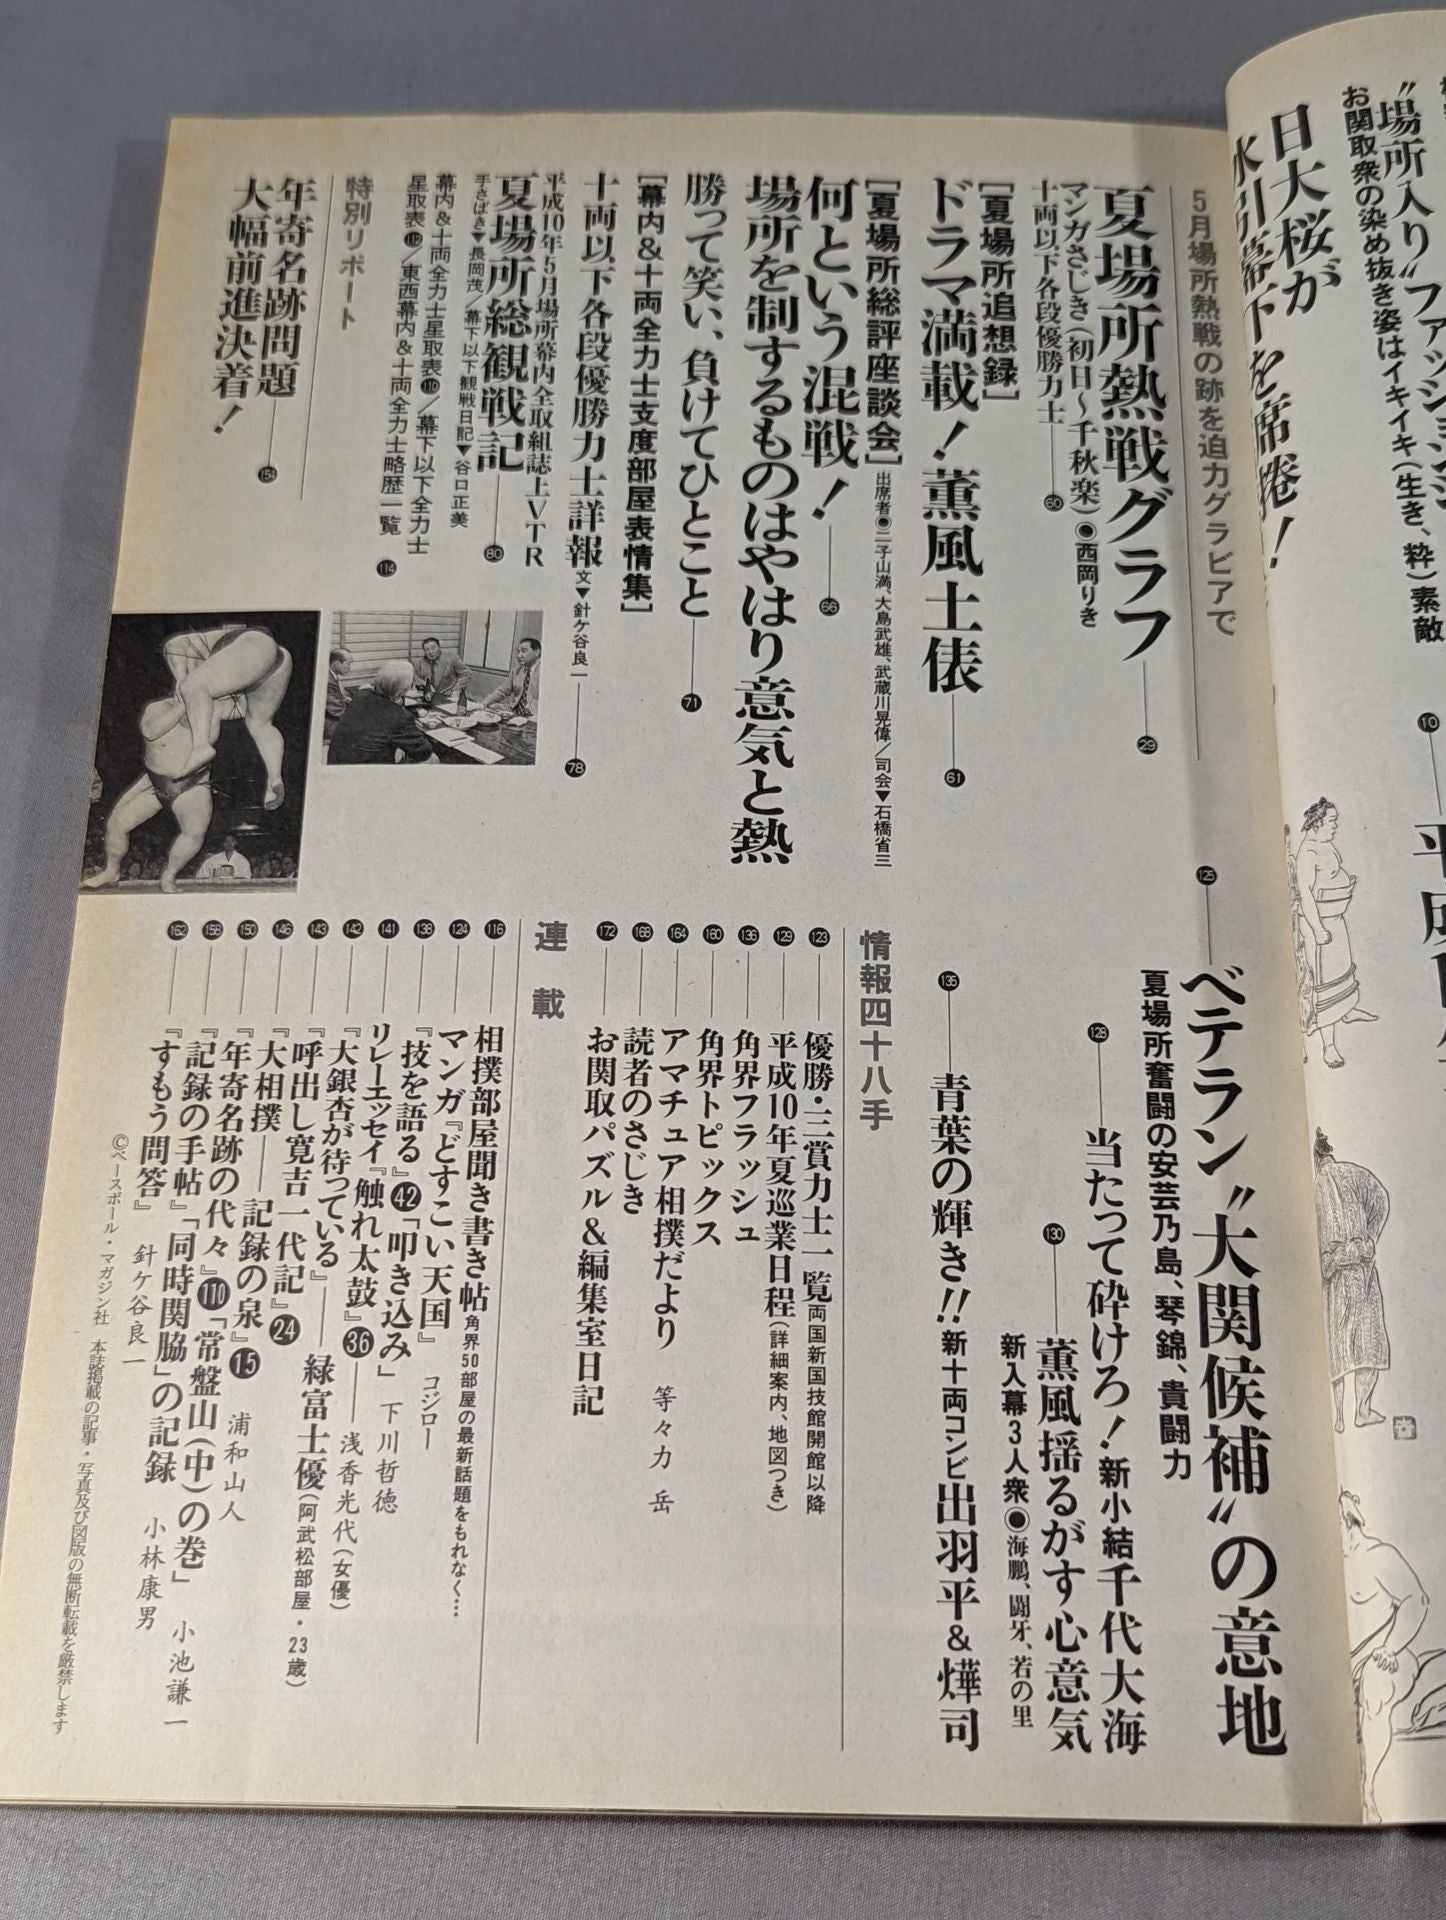 〝場所入り〟ファッション
お関取衆の染め抜き姿はイキイキ(生き、粋)素敵
10
日大桜が
水引幕下を席捲!
5月場所熱戦の跡を迫力グラビアで
夏場所熱戦グラフ 29
マンガさじき(初日〜千秋楽)◉西岡りき
十両以下各段優勝力士 60
[夏場所追想録]
ドラマ満載!薫風土俵 61
[夏場所総評座談会] 出席者◉二子山満、大島武雄、武蔵川晃偉/司会▼石橋省三
何という混戦! 66
場所を制するものはやはり意気と熱
勝って笑い、負けてひとこと 71
[幕内&十両全力士支度部屋表情集]
十両以下各段優勝力士詳報 文▼針ケ谷良一 78
平成10年5月場所幕内全取組誌上VTR
夏場所総観戦記 80
手さばき▼長岡茂/幕下以下観戦日記▼谷口正美
幕内&十両全力士星取表110/幕下以下全力士
星取表112/東西幕内&十両全力士略歴一覧 114
特別リポート
年寄名跡問題 154
大幅前進決着!
125 ベテラン〝大関候補〟の意地
夏場所奮闘の安芸乃島、琴錦、貴闘力
128 当たって砕けろ!新小結千代大海
130 薫風揺るがす心意気
新入幕3人衆◉海鵬、闘牙、若の里
135 青葉の輝き!!新十両コンビ出羽平&燁司
情報四十八手
123 優勝・三賞力士一覧両国新国技館開館以降
129 平成10年夏巡業日程(詳細案内、地図つき)
136 角界フラッシュ
160 角界トピックス
164 アマチュア相撲だより 等々力 岳
168 読者のさじき
172 お関取パズル&編集室日記
連載
116 相撲部屋聞き書き帖角界50部屋の最新話題をもれなく…
124 マンガ『どすこい天国』 コジロー
138 『技を語る』42「叩き込み」 下川哲徳
141 リレーエッセイ『触れ太鼓』36 浅香光代(女優)
142 『大銀杏が待っている』 緑富士優(阿武松部屋・23歳)
143 『呼出し寛吉一代記』24
146 『大相撲―記録の泉』15 浦和山人
150 『年寄名跡の代々』110「常盤山(中)の巻」 小池謙一
158 『記録の手帖』「同時関脇」の記録 小林康男
162 『すもう問答』 針ケ谷良一
©ベースボール・マガジン社 本誌掲載の記事・写真及び図版の無断転載を厳禁します